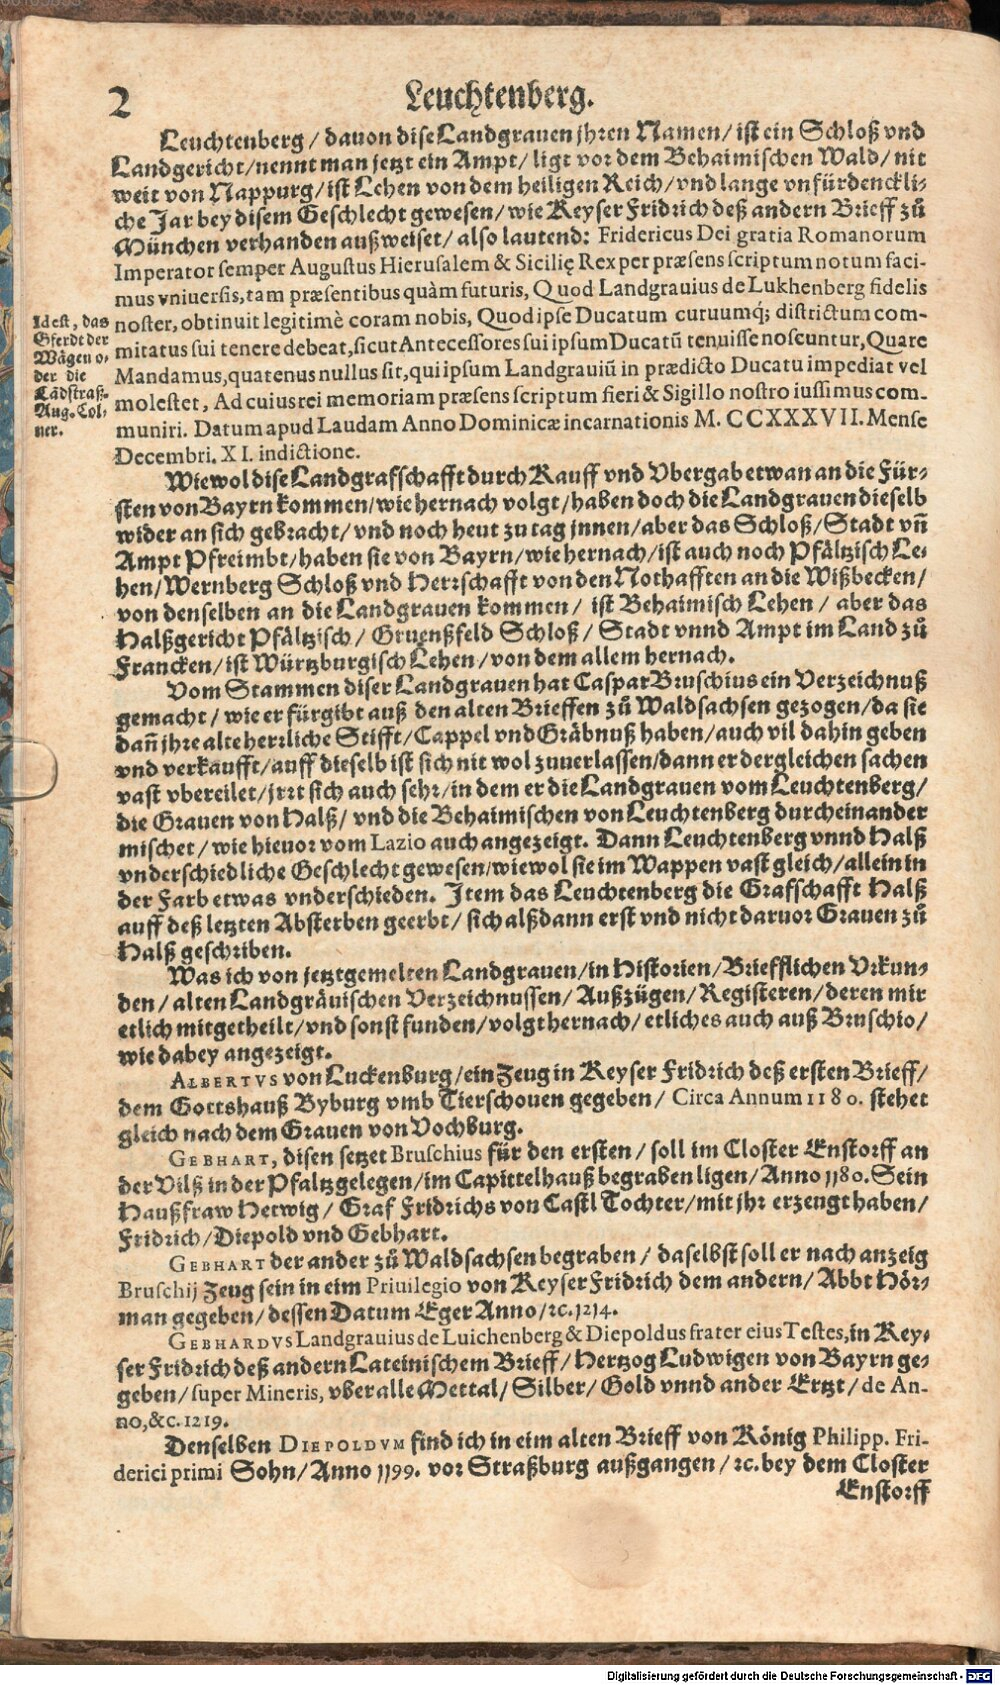 2
Leuchtenberg.
Leuchtenberg / dauon dise Landgrauen jhren Namen / ist ein Schloß vnd
Landgericht / nennt man jetzt ein Ampt / ligt vor dem Behaimischen Wald / nit
weit von Nappurg / ist Lehen von dem heiligen Reich / vnd lange vnfürdenckli-
che Jar bey disem Geschlecht gewesen / wie Keyser Fridrich deß andern Brieff zů
München verhanden außweiset / also lautend: Fridericus Dei gratia Romanorum
Imperator semper Augustus Hierusalem & Sicilię Rex per præsens scriptum notum faci-
mus vniuersis, tam præsentibus quàm futuris, Quod Landgrauius de Lukhenberg fidelis
noster, obtinuit legitimè coram nobis, Quod ipse Ducatum curuumq́; districtum com-
mitatus sui tenere debeat, sicut Antecessores sui ipsum Ducatũ tenuisse noscuntur, Quare
Mandamus, quatenus nullus sit, qui ipsum Landgrauiũ in prædicto Ducatu impediat vel
molestet, Ad cuius rei memoriam præsens scriptum fieri & Sigillo nostro iussimus com-
muniri. Datum apud Laudam Anno Dominicæ incarnationis M. CCXXXVII. Mense
Decembri. XI. indictione.
Id est, das
Gferdt der
Wägen o-
der die
Lãdstraß.
Aug. Col-
ner.
Wiewol dise Landgrafschafft durch Kauff vnd Vbergab etwan an die Für-
sten von Bayrn kommen / wie hernach volgt / haben doch die Landgrauen dieselb
wider an sich gebracht / vnd noch heut zu tag jnnen / aber das Schloß / Stadt vñ
Ampt Pfreimbt / haben sie von Bayrn / wie hernach / ist auch noch Pfältzisch Le-
hen / Wernberg Schloß vnd Herrschafft von den Nothafften an die Wißbecken /
von denselben an die Landgrauen kommen / ist Behaimisch Lehen / aber das
Halßgericht Pfältzisch / Gruenßfeld Schloß / Stadt vnnd Ampt im Land zů
Francken / ist Würtzburgisch Lehen / von dem allem hernach.
Vom Stammen diser Landgrauen hat Caspar Bruschius ein Verzeichnuß
gemacht / wie er fürgibt auß den alten Brieffen zů Waldsachsen gezogen / da sie
dañ jhre alte herrliche Stifft / Cappel vnd Gräbnuß haben / auch vil dahin geben
vnd verkaufft / auff dieselb ist sich nit wol zuuerlassen / dann er dergleichen sachen
vast vbereilet / jrrt sich auch sehr / in dem er die Landgrauen vom Leuchtenberg /
die Grauen von Halß / vnd die Behaimischen von Leuchtenberg durcheinander
mischet / wie hieuor vom Lazio auch angezeigt. Dann Leuchtenberg vnnd Halß
vnderschiedliche Geschlecht gewesen / wiewol sie im Wappen vast gleich / allein in
der Farb etwas vnderschieden. Item das Leuchtenberg die Grafschafft Halß
auff deß letzten Absterben geerbt / sich alßdann erst vnd nicht daruor Grauen zů
Halß geschriben.
Was ich von jetztgemelten Landgrauen / in Historien / Briefflichen Vrkun-
den / alten Landgräuischen Verzeichnussen / Außzügen / Registeren / deren mir
etlich mitgetheilt / vnd sonst funden / volgt hernach / etliches auch auß Bruschio /
wie dabey angezeigt.
ALBERTVS von Luckenburg / ein Zeug in Keyser Fridrich deß ersten Brieff /
dem Gottshauß Byburg vmb Tierschouen gegeben / Circa Annum 1180. stehet
gleich nach dem Grauen von Vochburg.
GEBHART, disen setzet Bruschius für den ersten / soll im Closter Enstorff an
der Vilß in der Pfaltz gelegen / im Capittelhauß begraben ligen / Anno 1180. Sein
Haußfraw Hetwig / Graf Fridrichs von Castl Tochter / mit jhr erzeugt haben /
Fridrich / Diepold vnd Gebhart.
GEBHART der ander zů Waldsachsen begraben / daselbst soll er nach anzeig
Bruschij Zeug sein in eim Priuilegio von Keyser Fridrich dem andern / Abbt Hör-
man gegeben / dessen Datum Eger Anno / ꝛc. 1214.
GEBHARDVS Landgrauius de Luichenberg & Diepoldus frater eius Testes, in Key-
ser Fridrich deß andern Lateinischem Brieff / Hertzog Ludwigen von Bayrn ge-
geben / super Mineris, vber alle Mettal / Silber / Gold vnnd ander Ertzt / de An-
no, &c. 1219.
Denselben DIEPOLDVM find ich in eim alten Brieff von König Philipp. Fri-
derici primi Sohn / Anno 1199. vor Straßburg außgangen / ꝛc. bey dem Closter
Enstorff
Digitalisierung gefördert durch die Deutsche Forschungsgemeinschaft - DFG